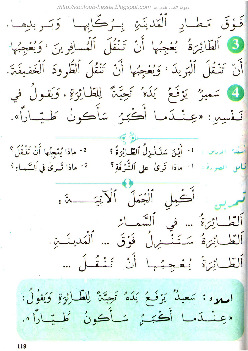 فَوْقَ مَطَارِ الْمَدِينَةِ بِرُكَّابِهَا وَبَرِيدِهَا.
3 الطَّائِرَةُ يُعْجِبُهَا أَنْ تَنْقُلَ الْمُسَافِرِينَ، وَيُعْجِبُهَا
أَنْ تَنْقُلَ الْبَرِيدَ، وَيُعْجِبُهَا أَنْ تَنْقُلَ الطُّرُودَ الْخَفِيفَةَ.
4 سَمِيرٌ يَرْفَعُ يَدَهُ تَحِيَّةً لِلطَّائِرَةِ، وَيَقُولُ فِي
نَفْسِهِ: «عِنْدَمَا أَكْبُرُ سَأَكُونُ طَيَّارًا».
1- أَيْنَ سَتَنْزِلُ الطَّائِرَةُ؟ 2- مَاذَا يُعْجِبُهَا أَنْ تَنْقُلَ؟
1- مَاذَا تَرَى عَلَى الشُّرْفَةِ؟ 2- مَاذَا تَرَى فِي السَّمَاءِ؟
تمرين
أُكْمِلُ الْجُمَلَ الْآتِيَةَ:
الطَّائِرَةُ ... فِي السَّمَاءِ
الطَّائِرَةُ سَتَنْزِلُ فَوْقَ ... الْمَدِينَةِ
الطَّائِرَةُ يُعْجِبُهَا أَنْ تَنْقُلَ ...
املاء: سَعِيدٌ يَرْفَعُ يَدَهُ تَحِيَّةً لِلطَّائِرَةِ وَيَقُولُ:
«عِنْدَمَا أَكْبُرُ سَأَكُونُ طَيَّارًا».
119